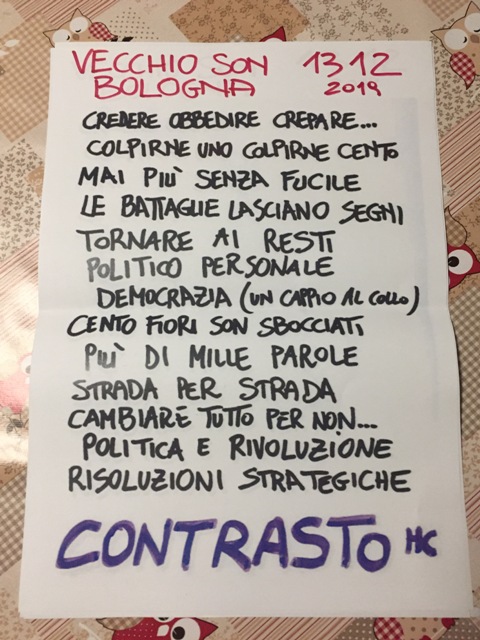 VECCHIO SON 13 12
BOLOGNA 2019
CREDERE OBBEDIRE CREPARE...
COLPIRNE UNO COLPIRNE CENTO
MAI PIÙ SENZA FUCILE
LE BATTAGLIE LASCIANO SEGNI
TORNARE AI RESTI
POLITICO PERSONALE
DEMOCRAZIA (UN CAPPIO AL COLLO)
CENTO FIORI SON SBOCCIATI
PIÙ DI MILLE PAROLE
STRADA PER STRADA
CAMBIARE TUTTO PER NON...
POLITICA E RIVOLUZIONE
RISOLUZIONI STRATEGICHE
CONTRASTO HC